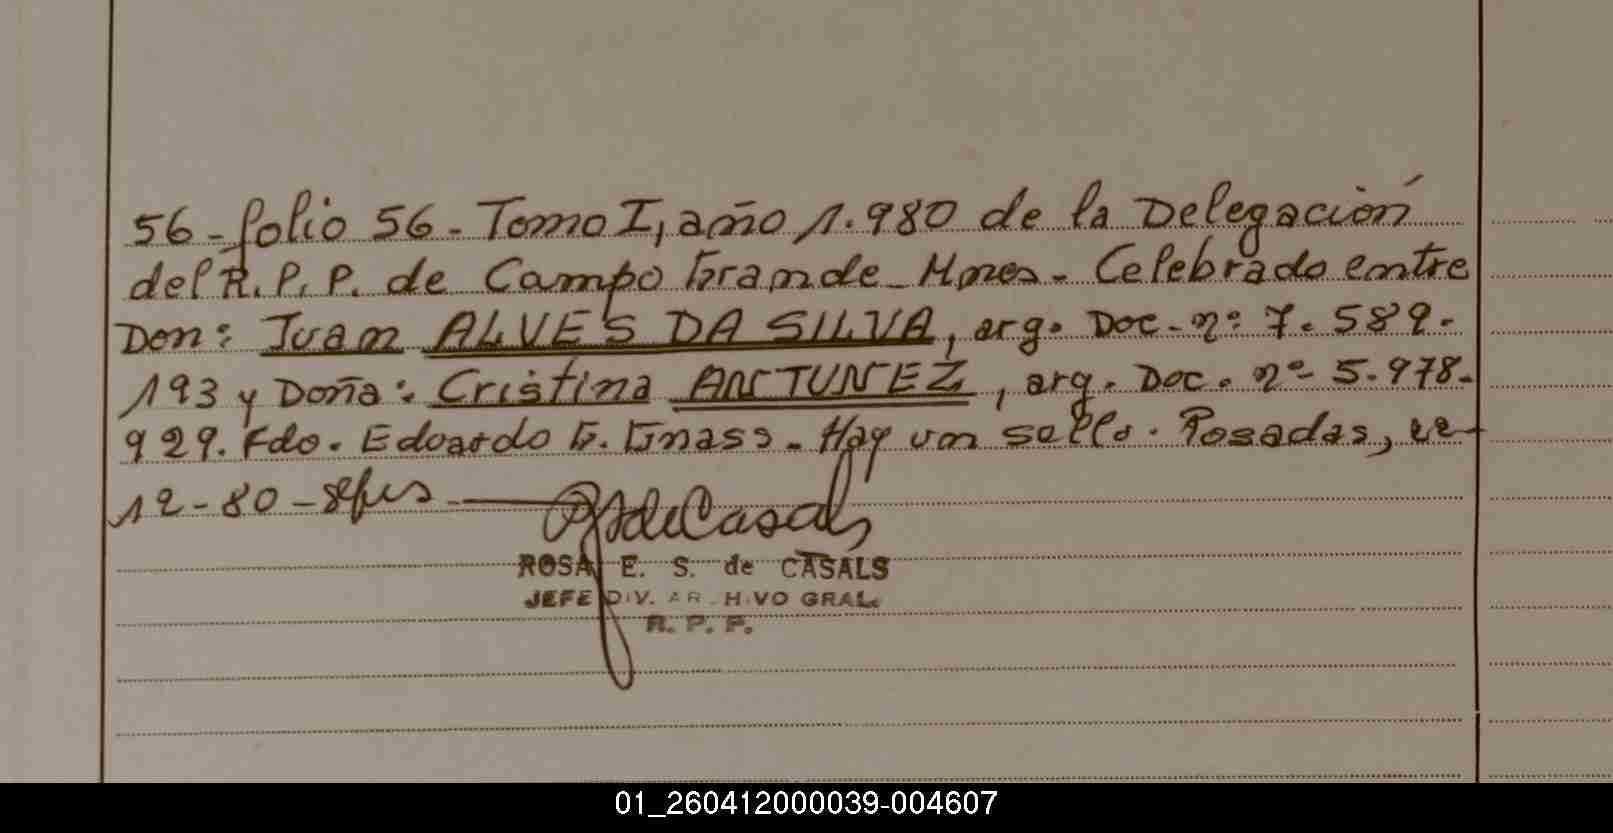 56-folio 56-Tomo I, año 1.980 de la Delegación
del R.P.P. de Campo Grande-Mnes- Celebrado entre
Don: Juan ALVES DA SILVA, arg. Doc. nº 7.589.
193 y Doña: Cristina ANTUNEZ, arg. Doc. nº 5.978.
929. Fdo. Eduardo G. Hay un sello. Posadas,
12-80-
de Casals
ROSA E. S. de CASALS
JEFE DIV. AR HIVO GRAL.
R. P. P.
01_260412000039-004607